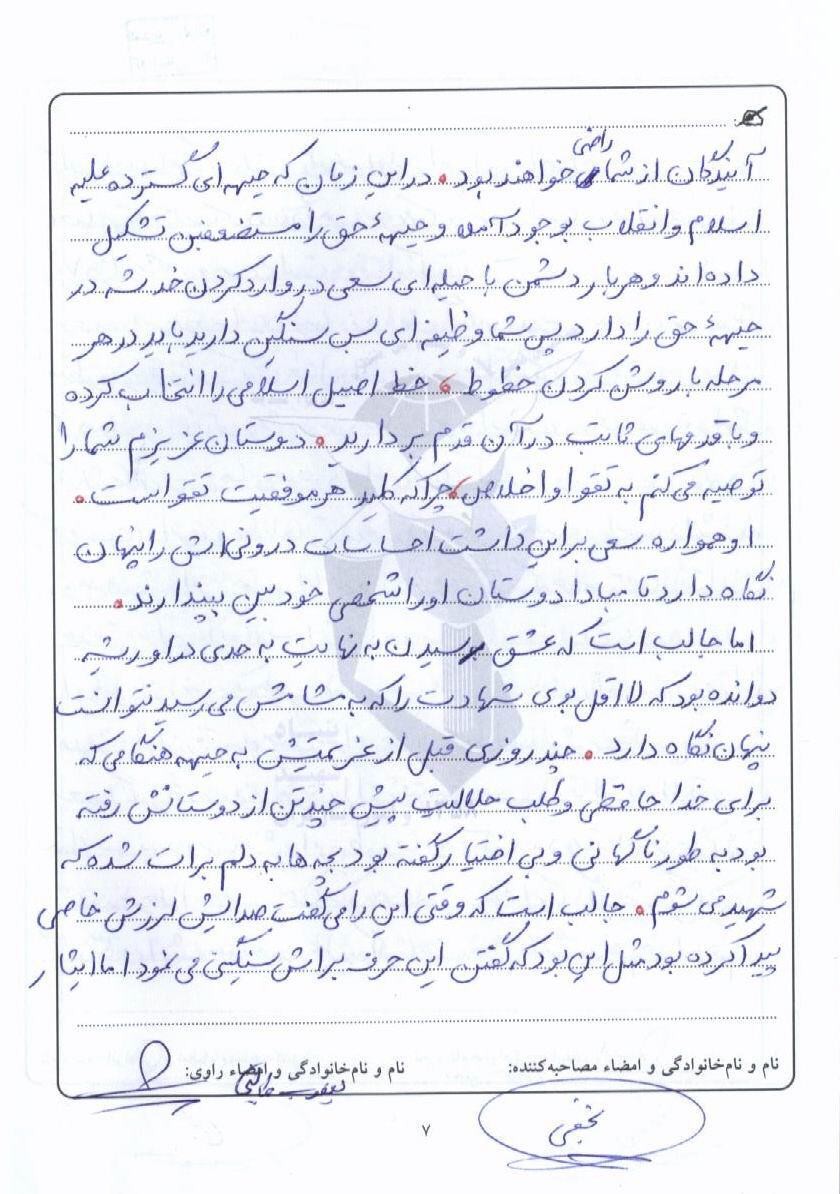 راضی
آیندگان از شما خواهند بود. در این زمان که جبهه ای گسترده علیه
اسلام و انقلاب بوجود آمده و جبههٔ حق را مستضعفین تشکیل
داده اند و هر بار دشمن با حیله ای سعی در وارد کردن خدشه در
جبههٔ حق را دارد پس شما وظیفه ای بس سنگین دارید باید در هر
مرحله با روشن کردن خطوط، خط اصیل اسلامی را انتخاب کرده
و با قدمهای ثابت در آن قدم بردارید. دوستان عزیزم شما را
توصیه می کنم به تقوا و اخلاص، چرا که کلید هر موفقیت تقوا است.
او همواره سعی بر این داشت احساسات درونی اش را پنهان
نگاه دارد تا مبادا دوستان او را شخصی خودبین بپندارند.
اما جالب است که عشق رسیدن به نهایت به حدی در او ریشه
دوانده بود که لااقل بوی شهادت را که به مشامش می رسید نتوانست
پنهان نگاه دارد. چند روزی قبل از عزیمتش به جبهه هنگامی که
برای خداحافظی و طلب حلالیت پیش چند تن از دوستانش رفته
بود به طور ناگهانی و بی اختیار گفته بود بچه ها به دلم برات شده که
شهید می شوم. جالب است که وقتی این را می گفت صدایش لرزش خاصی
پیدا کرده بود مثل این بود که گفتن این حرف براش سنگینی می نمود اما ایثار
نام و نام‌خانوادگی و امضاء مصاحبه‌کننده:
نام و نام‌خانوادگی و امضاء راوی:
نجفی
۷